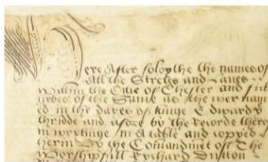 Here After foloythe the names of
All the Stretes and Lanes
Within the Citie of Chester and
of the Same as the wer nam
ed in the dayes of kinge Edwarde
thridde and as for by the Recorde there
in wrytinge in a table and coppyed
by the Comandment of the
Worshipfull Rychard Dutton